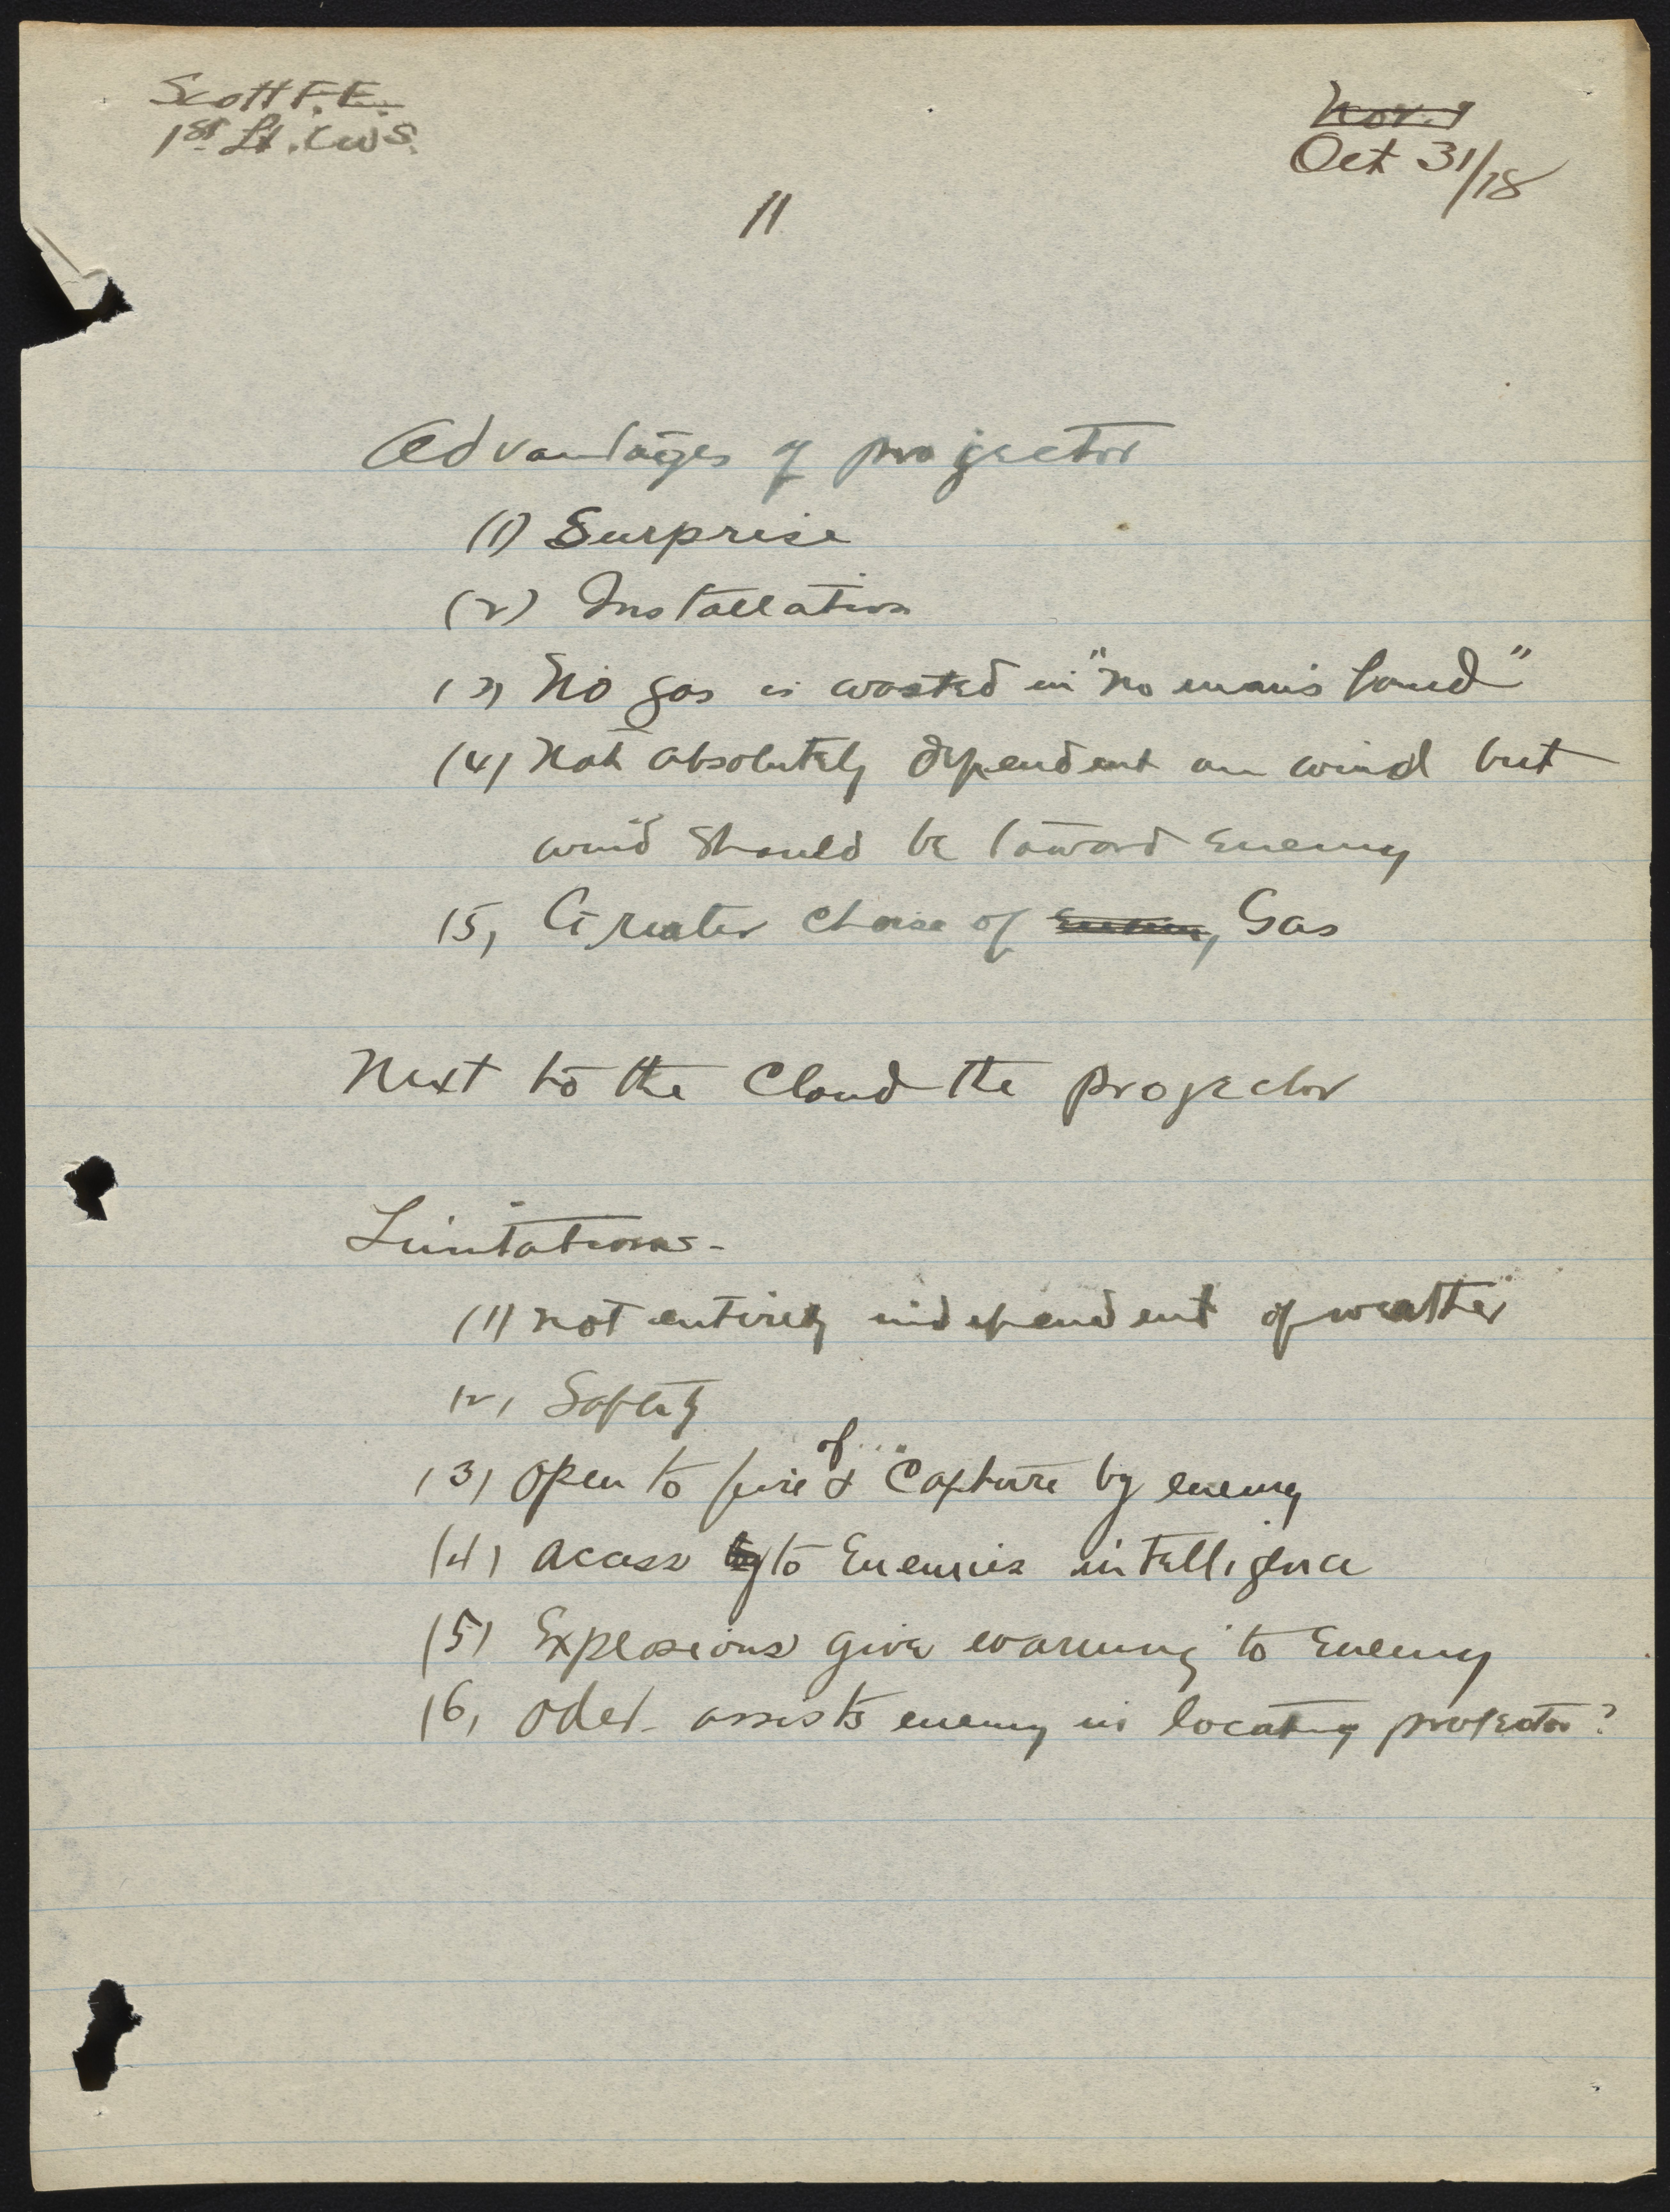 Scott F. E.
1st Lt. C.W.S.
Nov. 1
Oct 31/18
11
Advantages of projector
(1) Surprise
(2) Installation
(3) No gas is wasted in "no man's land"
(4) Not absolutely dependent on wind but
wind should be toward Enemy
(5) Greater choise of Gas
Next to the Cloud the projector
Limitations-
(1) not entirely independent of weather
(2) Safety
of
(3) Open to fire & Capture by enemy
(4) acass by to Enemies intelligence
(5) Explosions give warning to Enemy
(6) Oder assists enemy in locating projector?